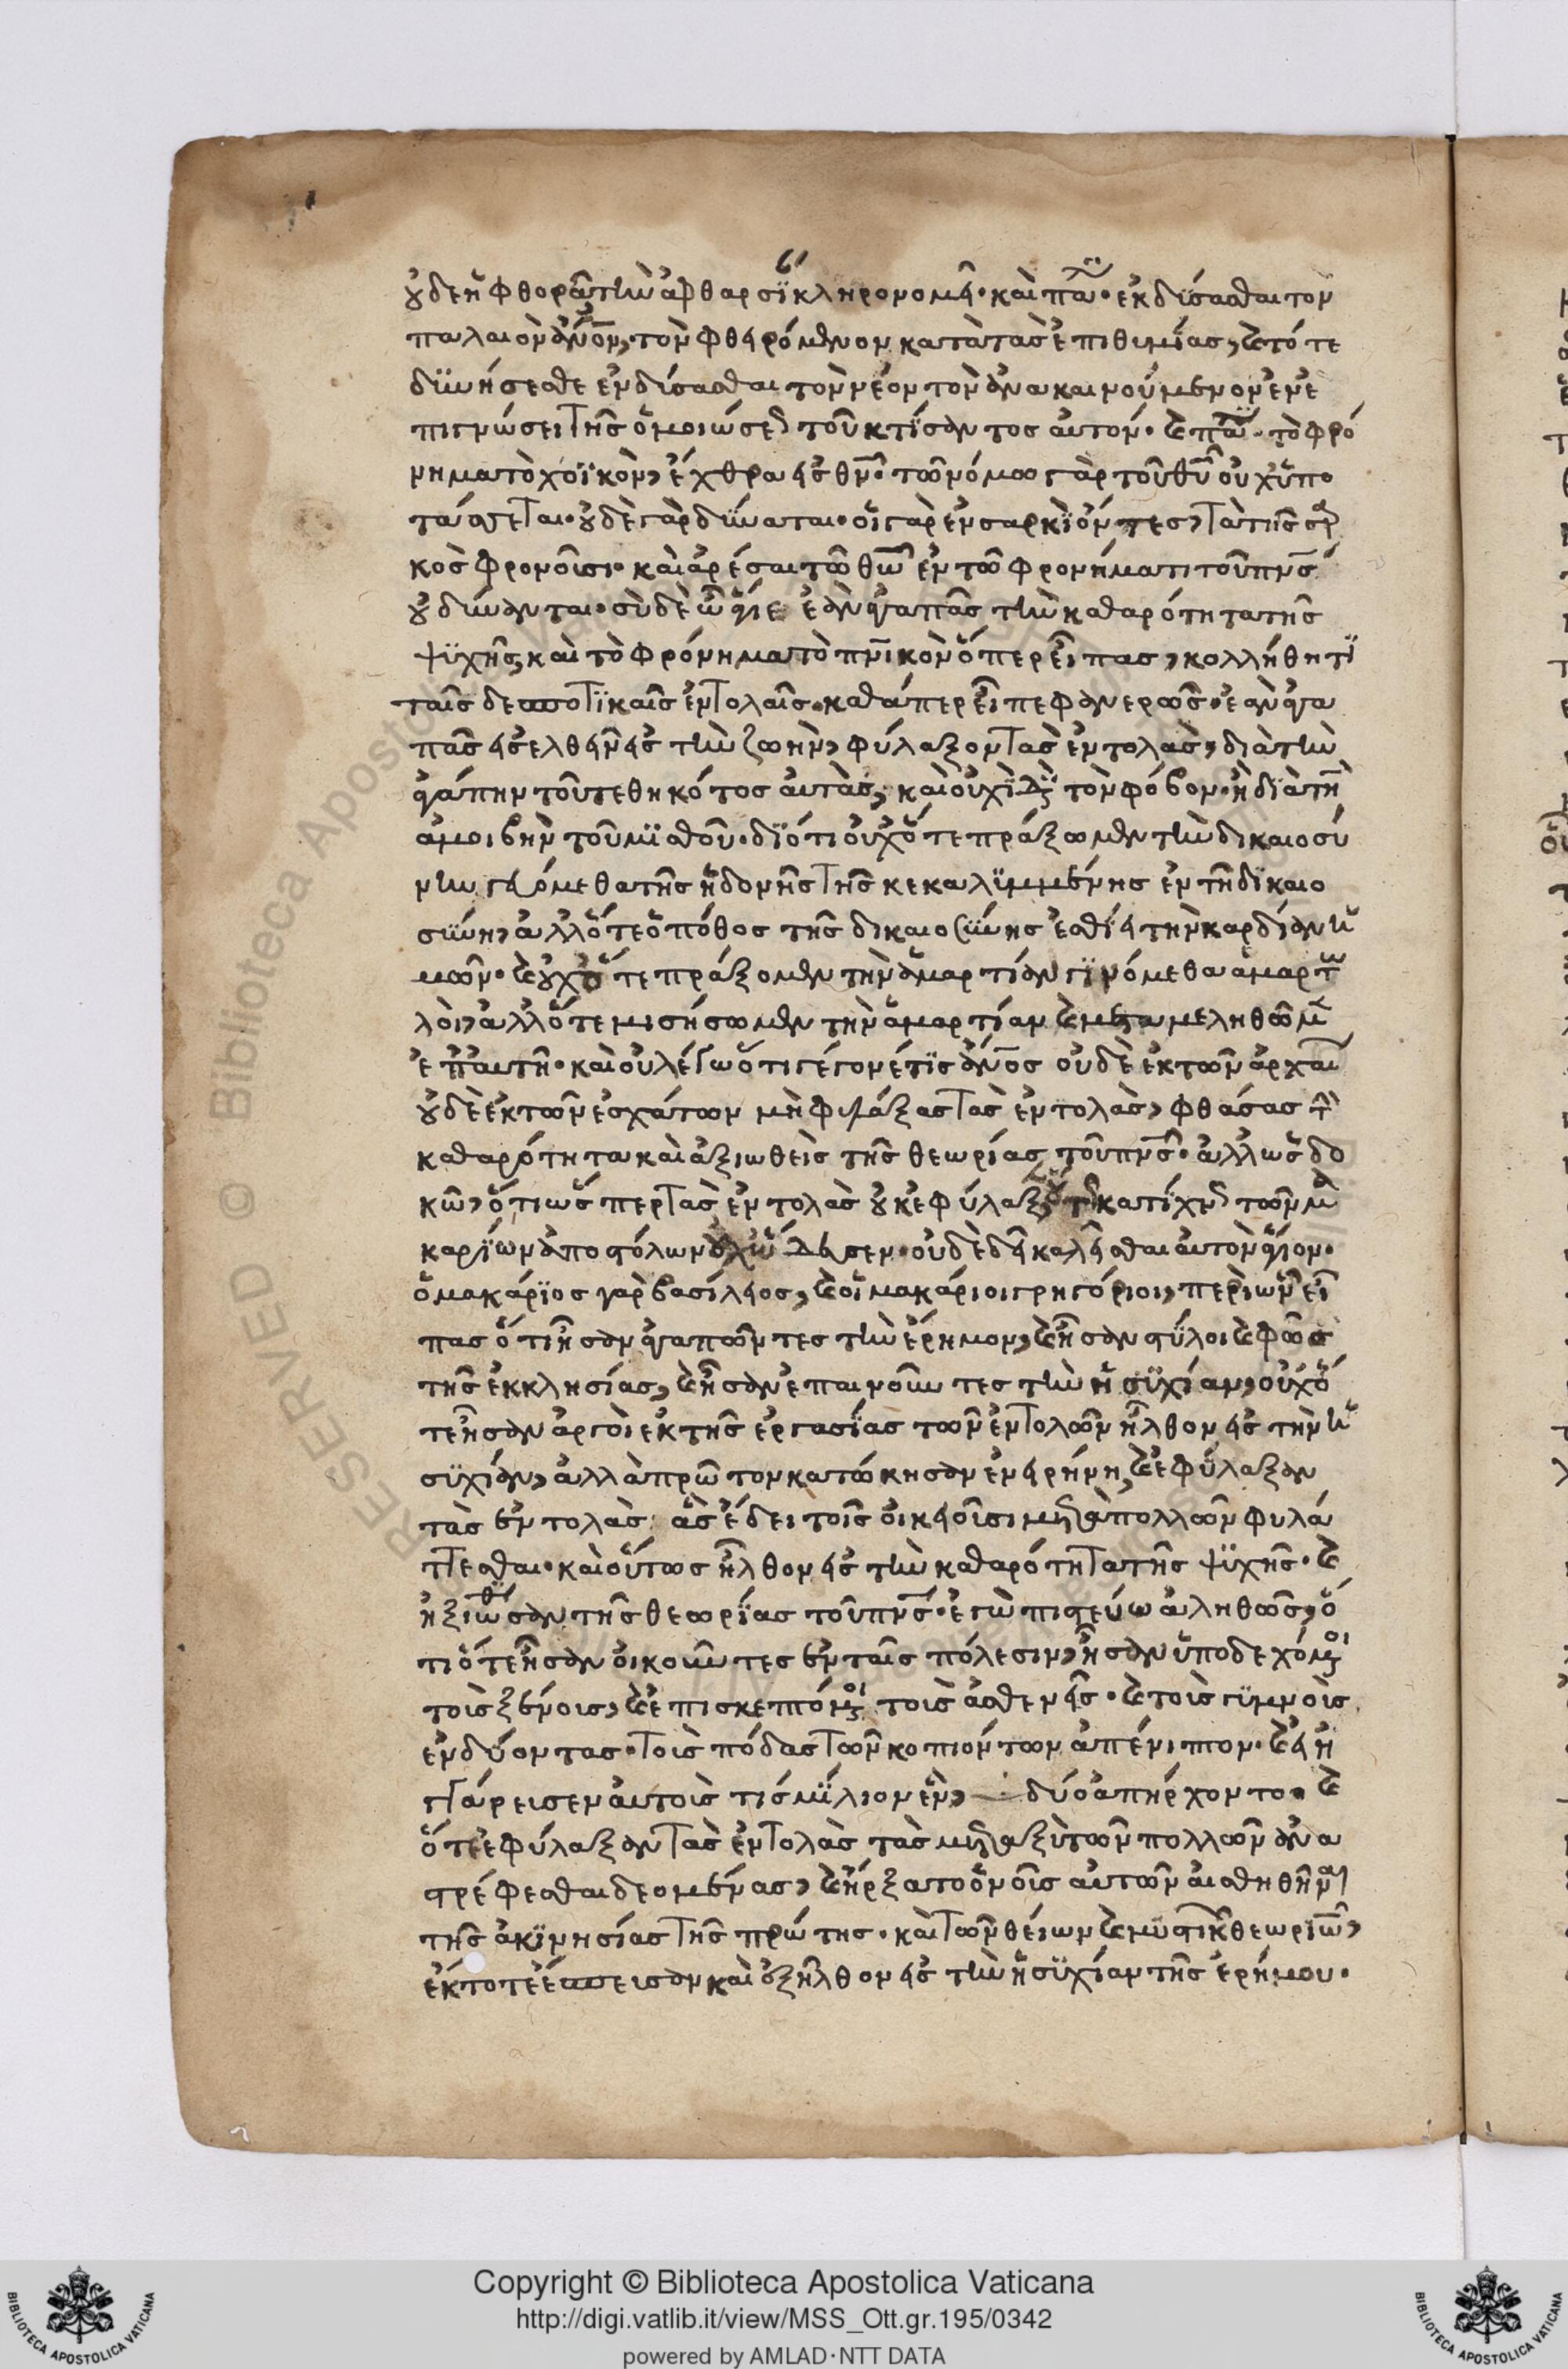 οὐδὲ ἡ φθορὰ τὴν ἀφθαρσίαν κληρονομεῖ· καὶ πάλιν· ἐκδύσασθαι τὸν
παλαιὸν ἄνον, τὸν φθειρόμενον κατὰ τὰς ἐπιθυμίας, καὶ τότε
δυνήσεσθε ἐνδύσασθαι τὸν νέον τὸν ἀνακαινούμενον ἐν ἐ
πιγνώσει τῆς ὁμοιώσεως τοῦ κτίσαντος αὐτόν· καὶ πάλιν· τὸ φρό
νημα τὸ χοϊκὸν, ἔχθρα εἰς θν· τῶ νόμω γὰρ τοῦ θυ οὐχ ὑπο
τάσσεται· οὐδὲ γὰρ δύναται· οἱ γὰρ ἐν σαρκὶ ὄντες, τὰ τῆς σαρ
κὸς φρονοῦσι· καὶ ἀρέσαι τῶ θω ἐν τῶ φρονήματι τοῦ πνς
οὐ δύνανται· σὺ δὲ ὦ ἅγιε ἐὰν ἀγαπᾶς τὴν καθαρότητα τῆς
ψυχῆς, καὶ τὸ φρόνημα τὸ πνικὸν ὅπερ εἶπας, κολλήθητι
ταῖς δεσποτικαῖς ἐντολαῖς· καθάπερ εἶπε φανερῶς· ἐὰν ἀγα
πᾶς εἰσελθεῖν εἰς τὴν ζωὴν, φύλαξον τὰς ἐντολὰς, διὰ τὴν
ἀγάπην τοῦ τεθηκότος αὐτὰς, καὶ οὐχὶ διὰ τὸν φόβον, ἢ διὰ τὴν
ἀμοιβὴν τοῦ μισθοῦ· διότι οὐχ ὅτε πράξωμεν τὴν δικαιοσύ
νην, γευόμεθα τῆς ἡδονῆς τῆς κεκαλυμμένης ἐν τῆ δικαιο
σύνη, ἀλλ' ὅτε ὁ πόθος τῆς δικαιοσύνης ἐσθίει τὴν καρδίαν ἡ
μῶν· καὶ οὐχ ὅτε πράξομεν τὴν ἁμαρτίαν γινόμεθα ἁμαρτω
λοὶ, ἀλλ' ὅτε μισήσωμεν τὴν ἁμαρτίαν καὶ μεταμεληθῶμεν
ἐπ' αὐτῆ· καὶ οὐ λέγω ὅτι γέγονέ τις ἄνος οὐδὲ ἐκ τῶν ἀρχαίων
οὐδὲ ἐκ τῶν ἐσχάτων μὴ φυλάξας τὰς ἐντολὰς, φθάσας τὴν
καθαρότητα καὶ ἀξιωθεὶς τῆς θεωρίας τοῦ πνς· ἀλλ' ὡς δο
κῶ, ὅτι ὥσπερ τὰς ἐντολὰς οὐκ ἐφύλαξε κατ' ἴχνος τῶν μα
καρίων ἀποστόλων οὐχ ὥδευσεν· οὐδὲ δεῖ καλεῖσθαι αὐτὸν ἅγιον·
ὁ μακάριος γὰρ βασίλειος, καὶ οἱ μακάριοι γρηγόριοι, περὶ ὧν εἶ
πας ὅτι ἦσαν ἀγαπῶντες τὴν ἔρημον, καὶ ἦσαν στύλοι καὶ φῶς
τῆς ἐκκλησίας, καὶ ἦσαν ἐπαινοῦντες τὴν ἡσυχίαν, οὐχ ὅ
τε ἦσαν ἀργοὶ ἐκ τῆς ἐργασίας τῶν ἐντολῶν ἦλθον εἰς τὴν ἡ
συχίαν, ἀλλὰ πρῶτον κατώκησαν ἐν εἰρήνη, καὶ ἐφύλαξαν
τὰς ἐντολὰς ἃς ἔδει τοῖς οἰκοῦσι μετὰ πολλῶν φυλά
ττεσθαι· καὶ οὕτως ἦλθον εἰς τὴν καθαρότητα τῆς ψυχῆς· καὶ
ἠξιώθησαν τῆς θεωρίας τοῦ πνς· ἐγὼ πιστεύω ἀληθῶς, ὅ
τι ὅτε ἦσαν οἰκοῦντες ἐν ταῖς πόλεσιν, ἦσαν ὑποδεχόμενοι
τοῖς ξένοις, καὶ ἐπισκεπτόμενοι τοῖς ἀσθενεῖς· καὶ τοῖς γυμνοῖς
ἐνδύοντας· τοὶς πόδας τῶν κοπιόντων ἀπένιπτον· καὶ εἰ ἠ
γγάρεισεν αὐτοὶς τὶς μίλιον ἓν, δύο ἀπήρχοντο· καὶ
ὅτε ἐφύλαξαν τὰς ἐντολὰς τὰς μεταξὺ τῶν πολλῶν ἀνα
στρέφεσθαι δεομένας, καὶ ἤρξατο ὁ νοῦς αὐτῶν αἰσθηθῆναι
τῆς ἀκινησίας τῆς πρώτης· καὶ τῶν θείων καὶ μυστικῶν θεωριῶν,
ἔκτοτε ἔσπεισαν καὶ ἐξῆλθον εἰς τὴν ἡσυχίαν τῆς ἐρήμου·
Copyright © Biblioteca Apostolica Vaticana
http://digi.vatlib.it/view/MSS_Ott.gr.195/0342
powered by AMLAD·NTT DATA